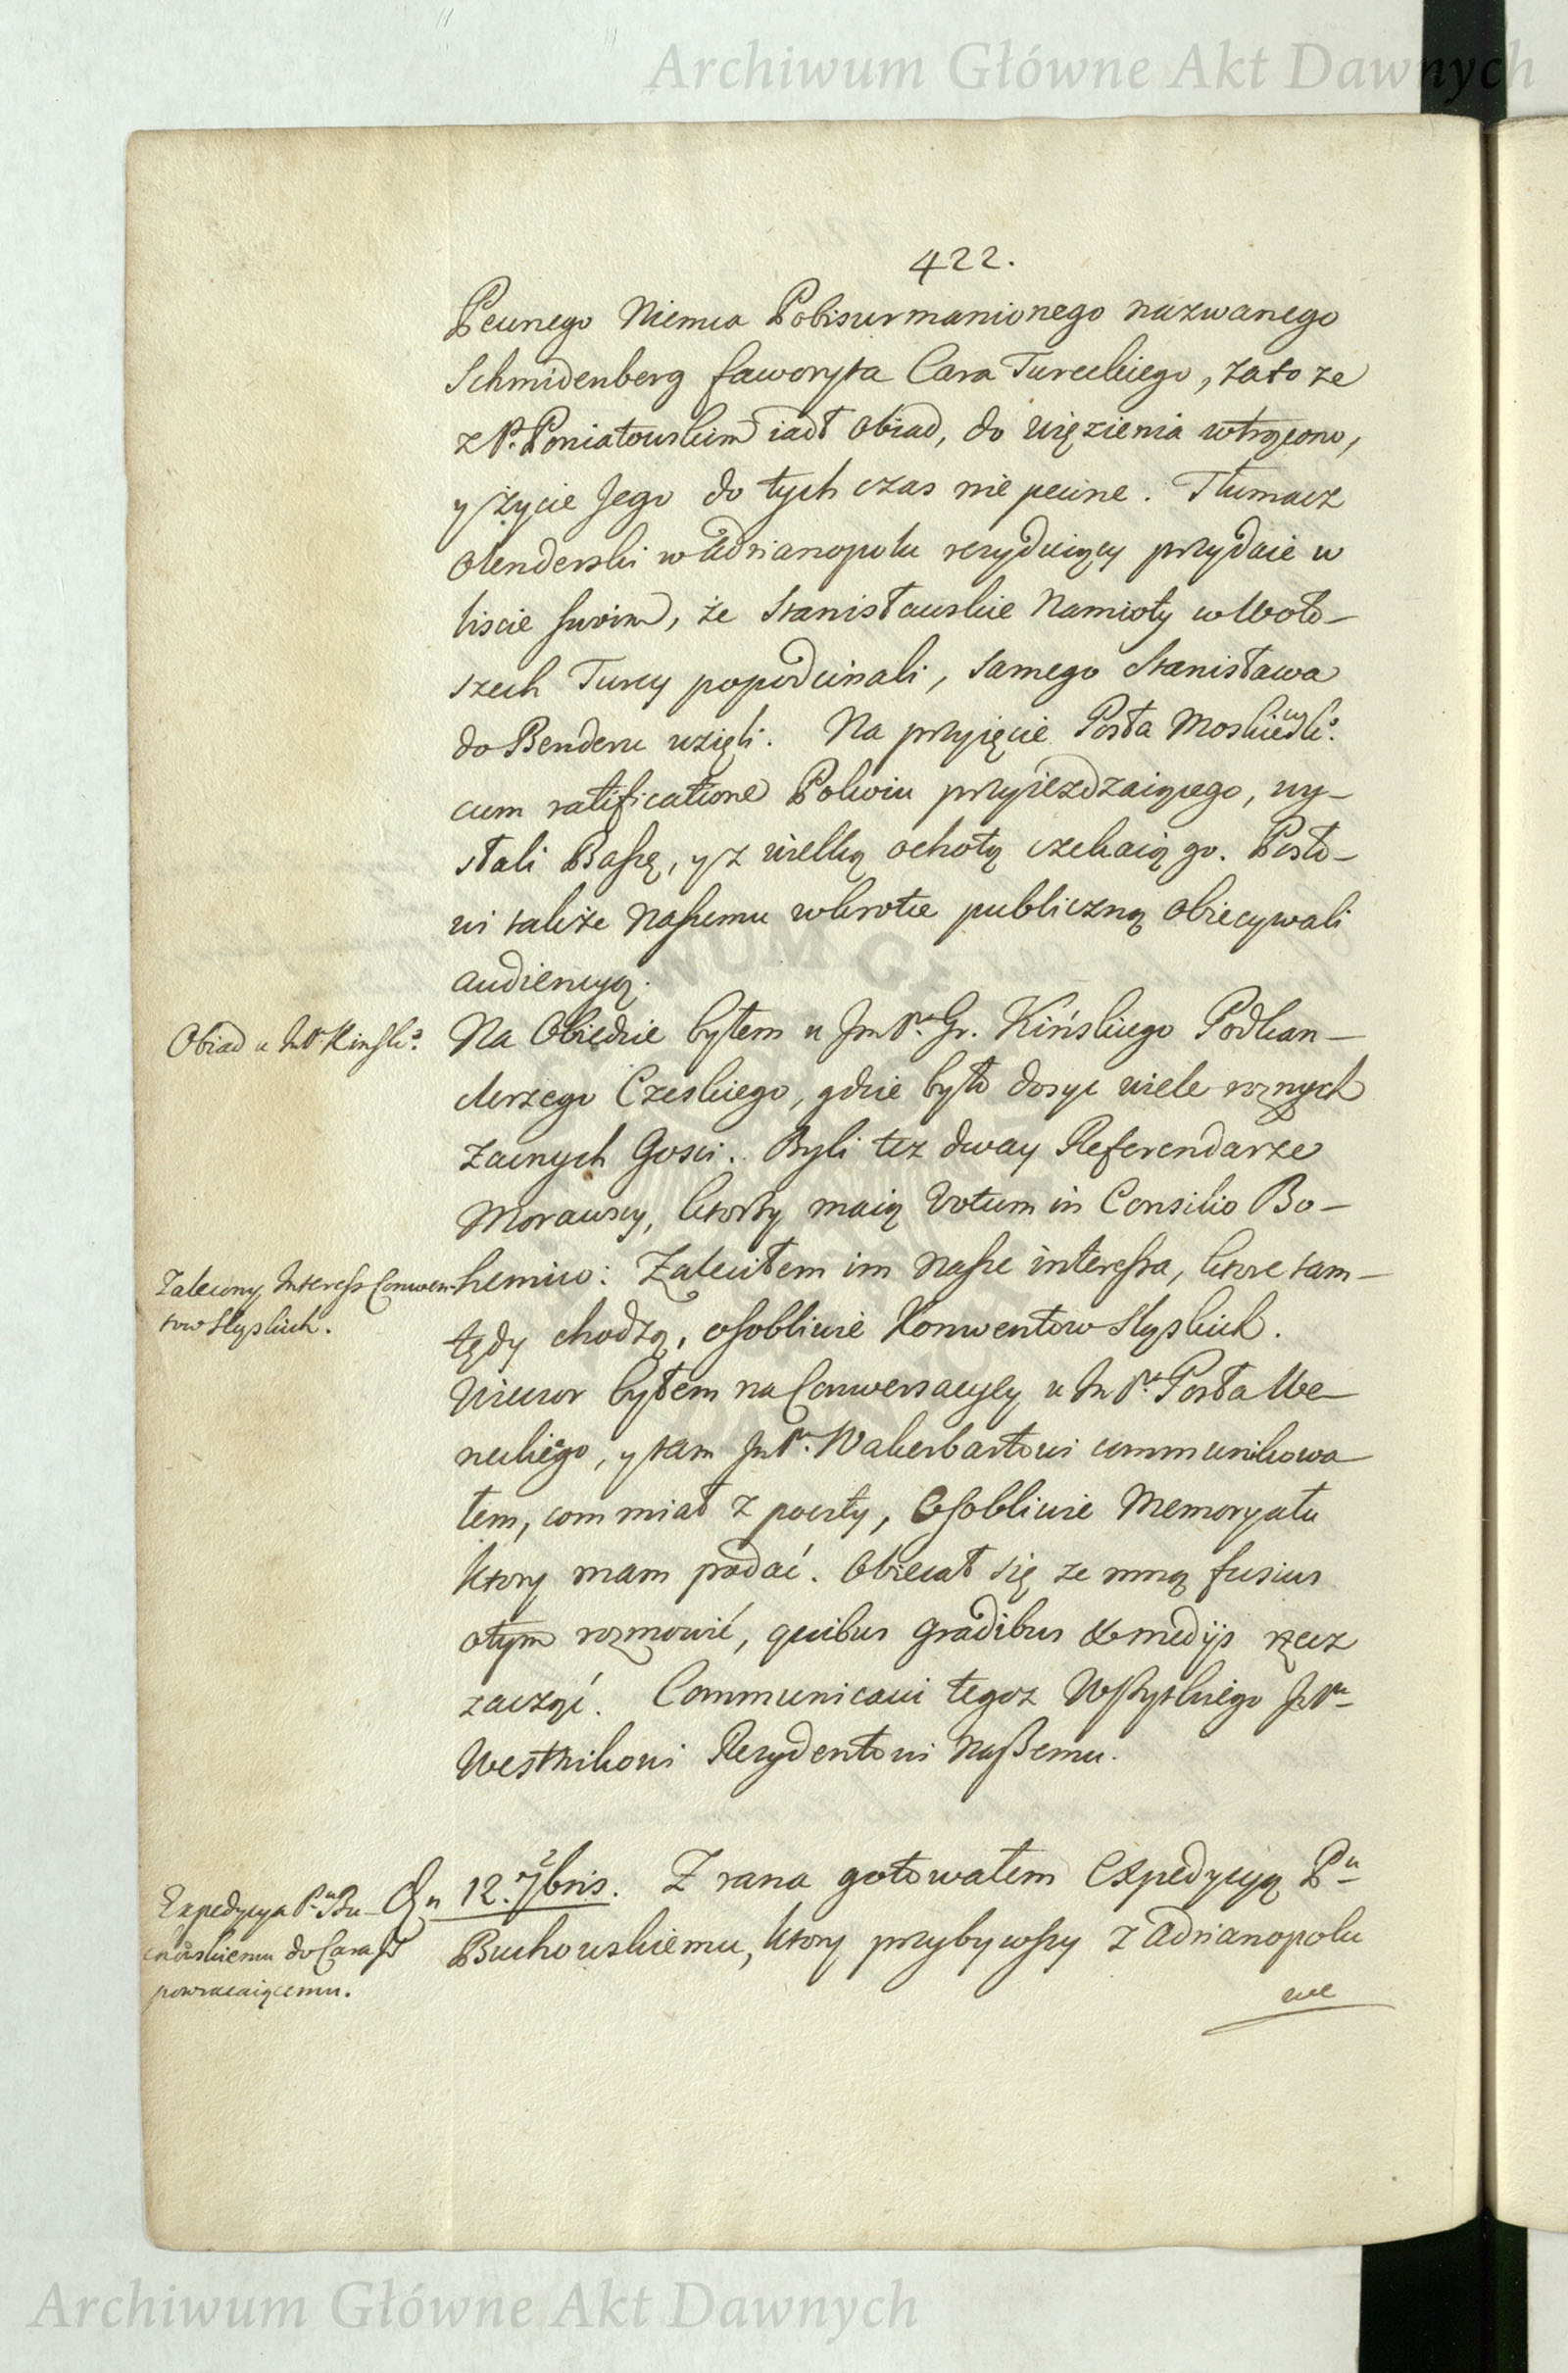 Archiwum Główne Akt Dawnych
422.
Pewnego Niemca Pobisurmanionego nazwanego
Schmidenberg faworyta Cara Tureckiego, zato ze
z P. Poniatowskim iadł obiad, do więzienia wtrącono,
y życie Jego do tych czas nie pewne. Tłumacz
Olenderski w Adrianopolu rezyduiący przydaie w
liscie swoim, że Stanisławskie Namioty w Woło-
szech Turcy popodcinali, samego Stanisława
do Benderu wzięli. Na przyięcie Posła Moskiewsk°.
cum ratificatione Pokoiu przyiezdzaiącego, wy-
słali Baszę, y z wielką ochotą czekaią go. Posło-
wi także Naszemu wkrotce publiczną obiecywali
audiencyą.
Obiad u JmP Kinsk°.
Na Obiedzie byłem u JmPa. Gr. Kińskiego Podkan-
clerzego Czeskiego, gdzie było dosyc wiele roznych
zacnych Gosci. Byli tez dway Referendarze
Morawscy, ktorzy maią Votum in Consilio Bo-
Zalecony Interess Conwen-
tow Sląskich.
hemico: Zaleciłem im nasze interessa, ktore tam-
tędy chodzą, osobliwie Konwentow Sląskich.
Wieczor byłem na Conwersacyey u JmPa Posła We-
neckiego, y tam JmPu. Wakerbartowi communikowa-
łem, com miał z poczty, Osobliwie Memoryału
ktory mam podać. Obiecał się ze mną fusius
otym rozmowić, quibus gradibus & medijs rzecz
zacząć. Communicavi tegoz Wszystkiego JmPu
Westnikowi Rezydentowi Naszemu.
Expedycya Pu Bu-
chowskiemu do Cara Jd
powracaiącemu.
Dn 12. 7bris. Z rana gotowałem Expedycyą Pu
Buchowskiemu, ktory przybywszy z Adrianopolu
we
Archiwum Główne Akt Dawnych